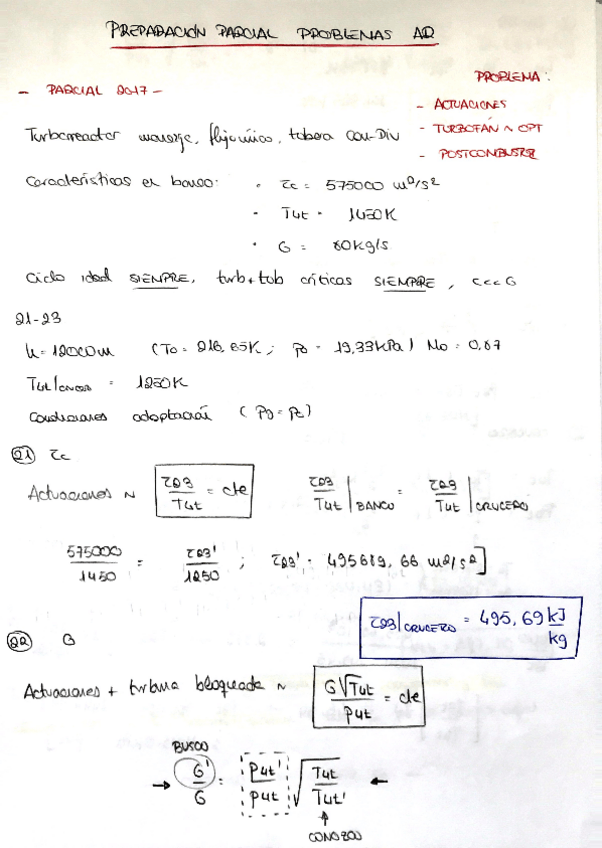 PREPARACIÓN PARCIAL PROBLEMAS AR
PROBLEMA:
- PARCIAL 2017 -
- ACTUACIONES
- TURBOFÁN ~ OPT
- POSTCOMBUSTOR
Turborreactor monoeje, flujo único, tobera Con-Div
Características en banco:
· τc = 575000 m²/s²
· T4t = 1450K
· G = 60Kg/s
Ciclo ideal SIEMPRE, turb+tob críticas SIEMPRE, c<<G
21-23
h = 12000m (To = 216,65K; po = 19,33kPa) Mo = 0,87
T4t|cruc = 1250K
Condiciones adaptación (P9 = Po)
21 τc
Actuaciones ~ τ23/T4t = cte τ23/T4t | BANCO = τ23/T4t | CRUCERO
575000/1450 = τ23'/1250 ; τ23' = 495689,66 m²/s²]
τ23|CRUCERO = 495,69 kJ/kg
22 G
Actuaciones + turbina bloqueada ~ G√T4t/P4t = cte
BUSCO
→ G'/G = P4t'/P4t √T4t/T4t' ←
CONOZCO